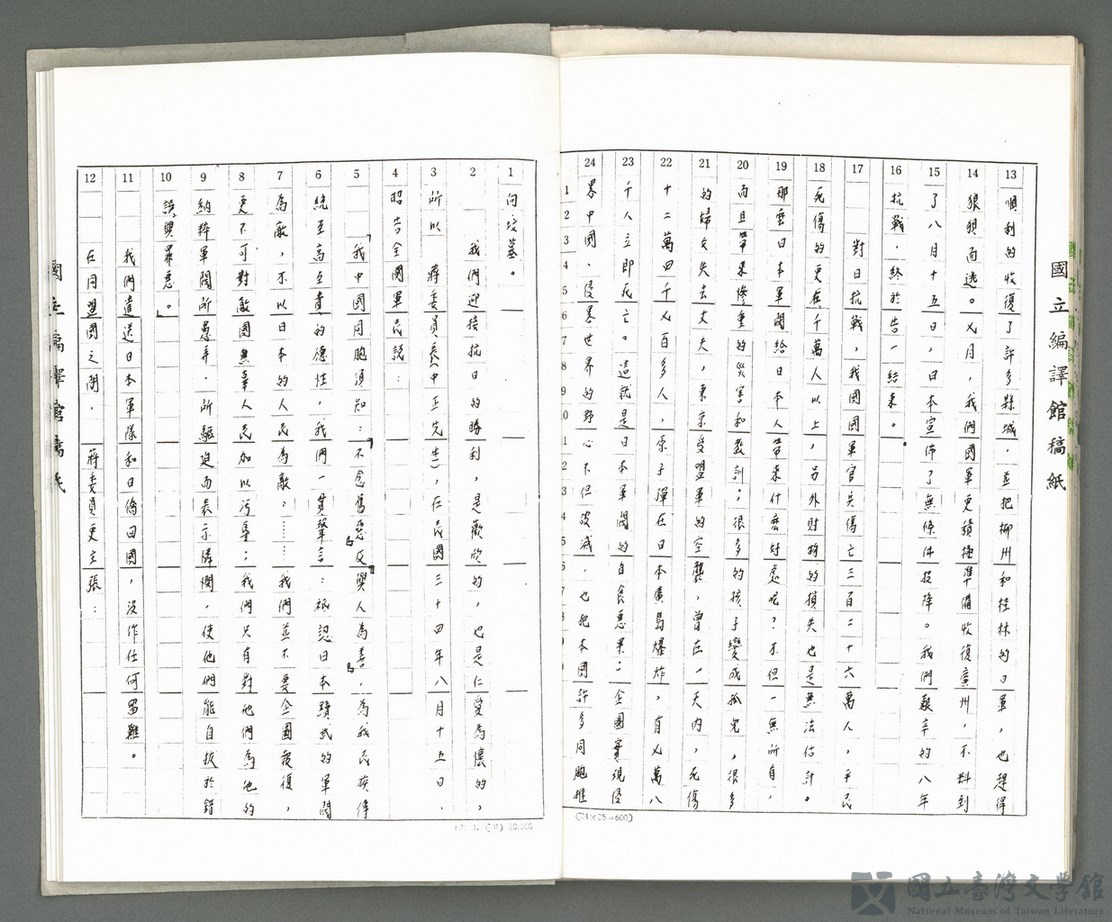 國立編譯館稿紙
13 順利的收復了許多縣城,並把柳州和桂林的日軍,也趕得
14 狼狽而逃。七月,我們國軍更積極準備收復廣州,不料到
15 了八月十五日,日本宣佈了無條件投降。我們艱辛的八年
16 抗戰,終於告一結束。
17 對日抗戰,我國國軍官兵傷亡三百二十六萬人,平民
18 死傷的更在千萬人以上,另外財物的損失也是無法估計。
19 那麼日本軍閥給日本人帶來什麼好處呢?不但一無所有,
20 而且帶來慘重的災害和教訓;很多的孩子變成孤兒,很多
21 的婦女失去丈夫,東京受盟軍的空襲,曾在一天內,死傷
22 十二萬四千七百多人,原子彈在日本廣島爆炸,有七萬八
23 千人立即死亡。這就是日本軍閥的自食惡果;企圖實現侵
24 畧中國、侵畧世界的野心不但破滅,也把本國許多同胞推
(24×25=600)
1 向坟墓。
2 我們迎接抗日的勝利,是歡欣的,也是仁愛為懷的,
3 所以 蔣委員長(中正先生),在民國三十四年八月十五日,
4 昭告全國軍民說:
5 「我中國同胞須知:『不念舊惡』及『與人為善』,為我民族傳
6 統至高至貴的德性,我們一貫聲言:祗認日本黷武的軍閥
7 為敵,不以日本的人民為敵:……我們並不要企圖報復,
8 更不可對敵國無辜人民加以污辱;我們只有對他們為他的
9 納粹軍閥所愚弄,所驅迫而表示憐憫,使他們能自拔於錯
10 誤與罪惡。」
11 我們遣送日本軍隊和日僑回國,沒作任何留難。
12 在同盟國之間, 蔣委員更主張:
國立編譯館稿紙
國立臺灣文學館
National Museum of Taiwan Literature